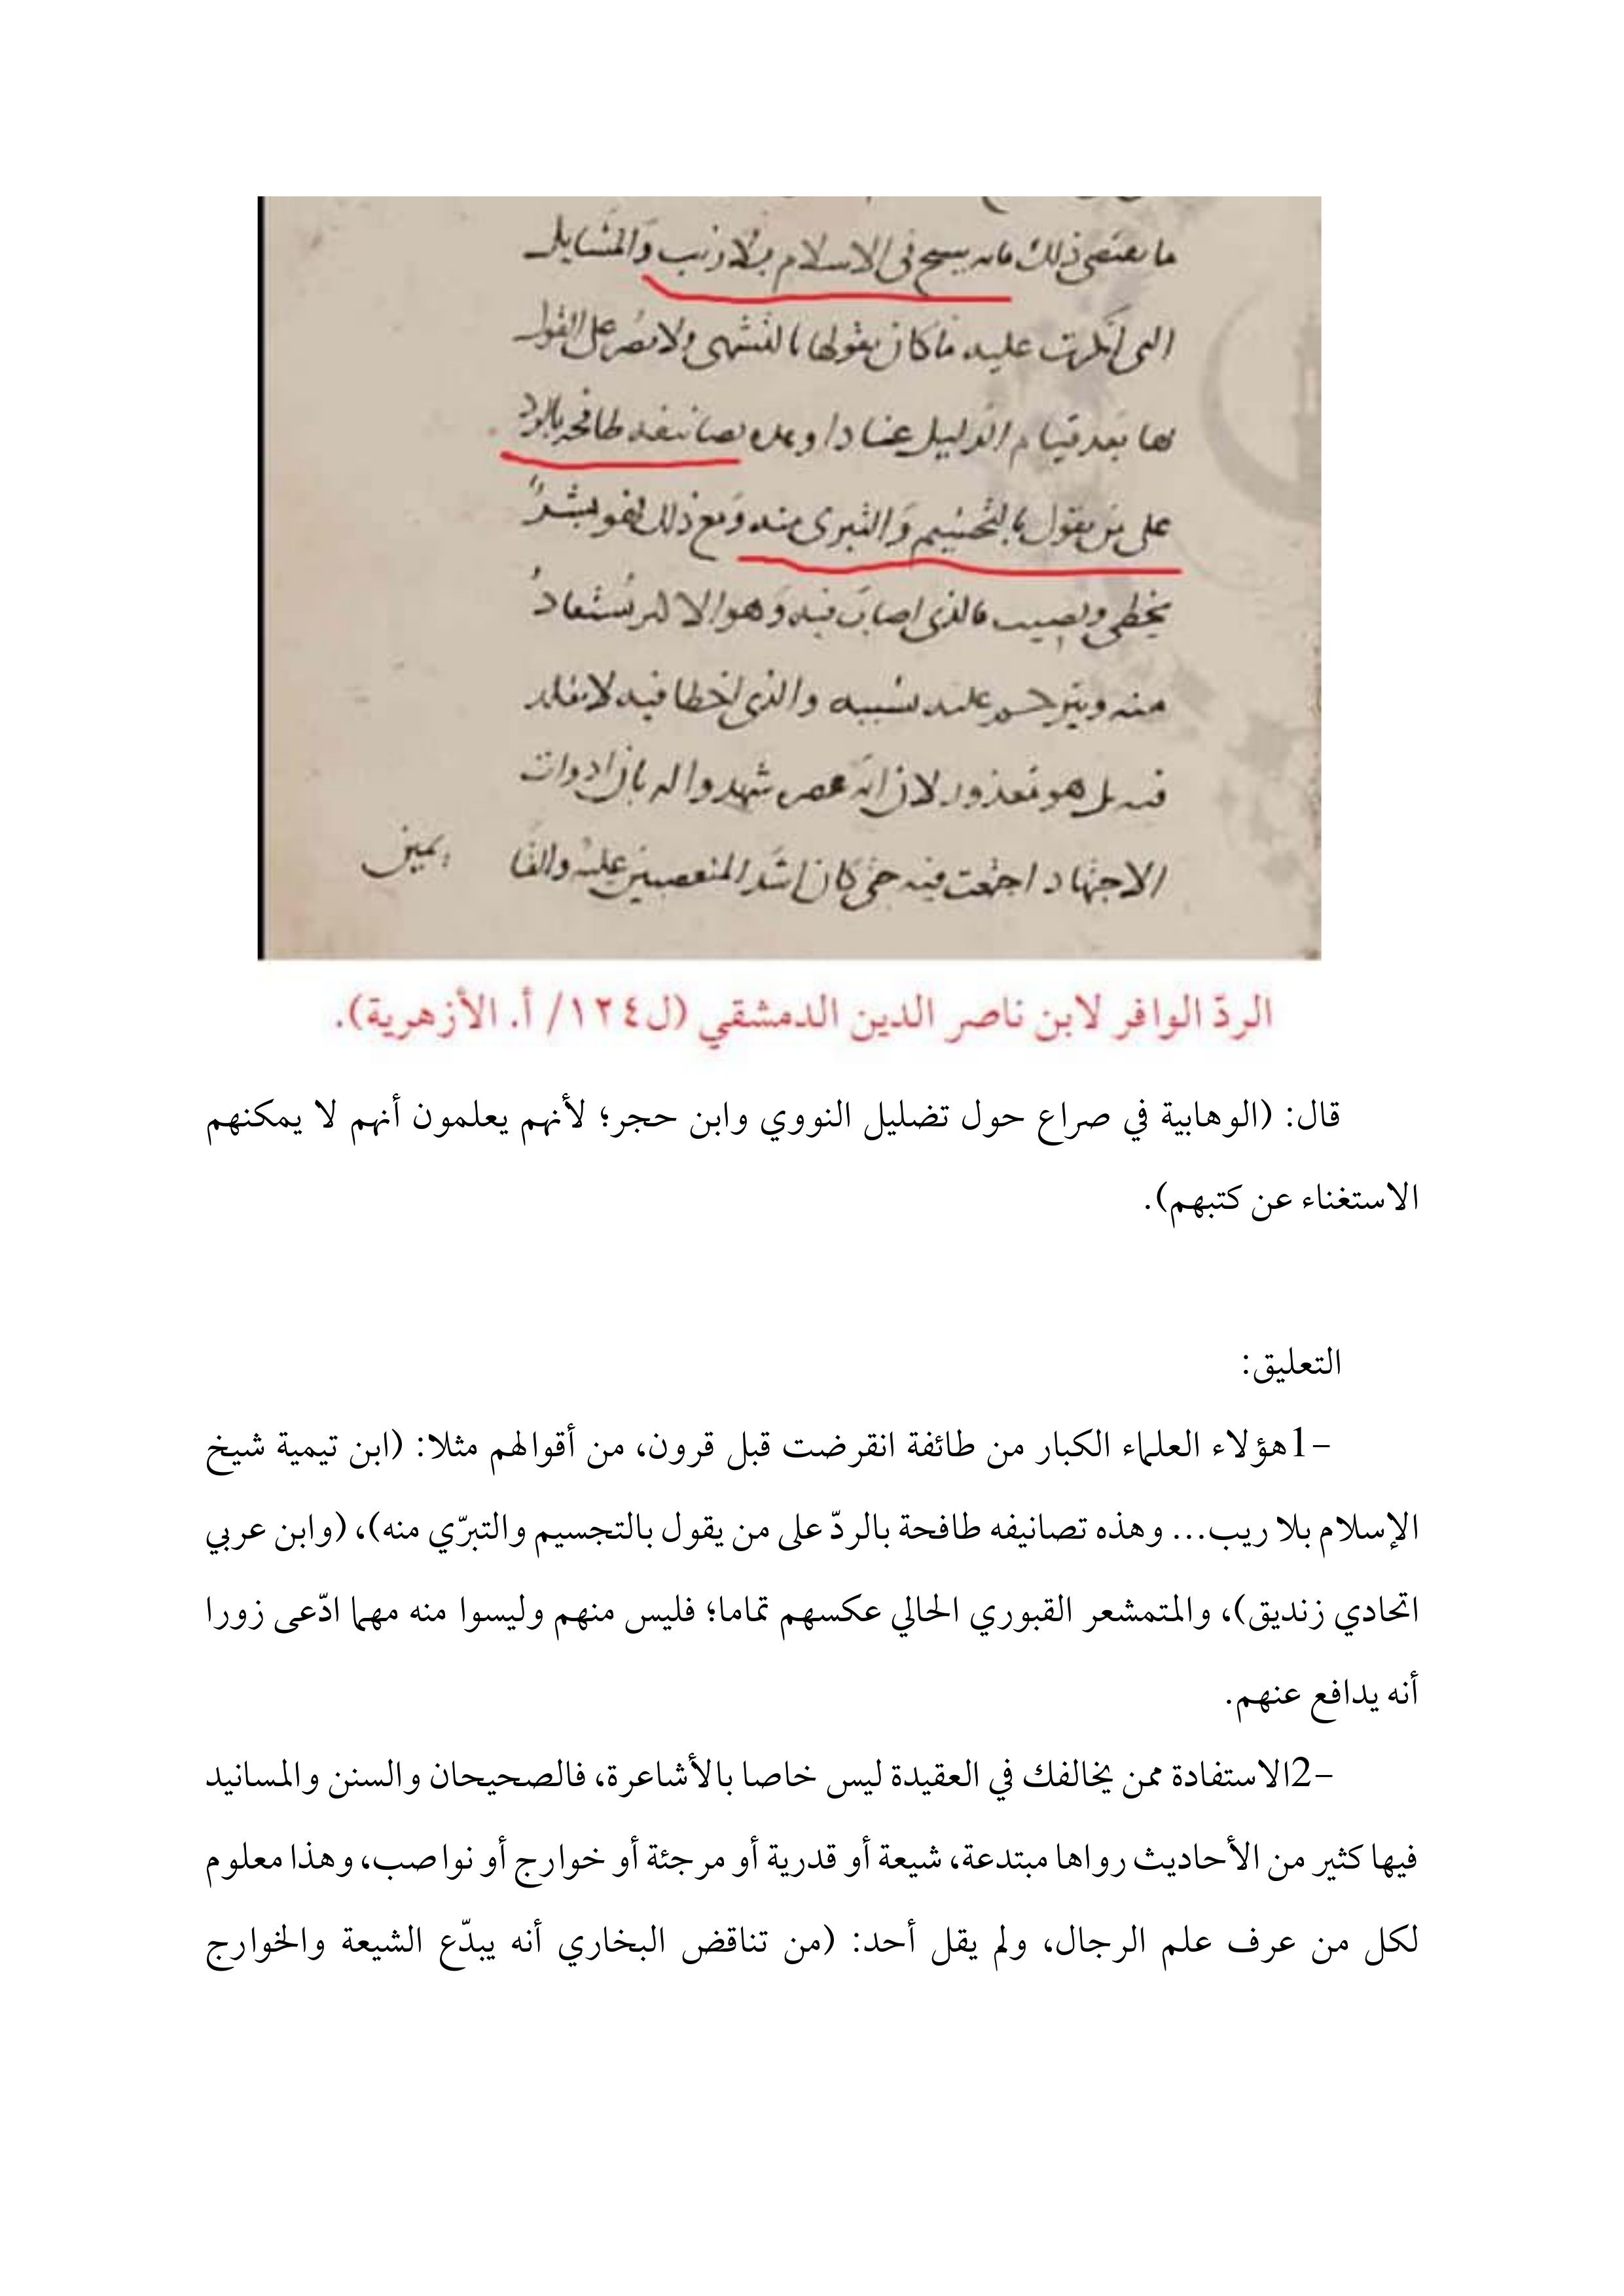 ما يقتضي ذلك فانه شيخ في الاسلام بلا ريب والمسايل
التي انكرت عليه ما كان يقولها بالتشهي ولا يصر على القول
بها بعد قيام الدليل عنادا وهذه تصانيفه طافحة بالرد
على من يقول بالتجسيم والتبري منه ومع ذلك فهو بشر
يخطي ويصيب فالذي اصاب فيه وهو الاكثر يستفاد
منه ويترحم عليه بسببه والذي اخطا فيه لا يقلد
فيه بل هو معذور لان ائمة عصره شهدوا له بان ادوات
الاجتهاد اجتمعت فيه حتى كان اشد المتعصبين عليه والقا
يمين
الردّ الوافر لابن ناصر الدين الدمشقي (ل١٢٤/ أ. الأزهرية).
قال: (الوهابية في صراع حول تضليل النووي وابن حجر؛ لأنهم يعلمون أنهم لا يمكنهم
الاستغناء عن كتبهم).
التعليق:
-1هؤلاء العلماء الكبار من طائفة انقرضت قبل قرون، من أقوالهم مثلا: (ابن تيمية شيخ
الإسلام بلا ريب... وهذه تصانيفه طافحة بالردّ على من يقول بالتجسيم والتبرّي منه)، (وابن عربي
اتحادي زنديق)، والمتمشعر القبوري الحالي عكسهم تماما؛ فليس منهم وليسوا منه مهما ادّعى زورا
أنه يدافع عنهم.
-2الاستفادة ممن يخالفك في العقيدة ليس خاصا بالأشاعرة، فالصحيحان والسنن والمسانيد
فيها كثير من الأحاديث رواها مبتدعة، شيعة أو قدرية أو مرجئة أو خوارج أو نواصب، وهذا معلوم
لكل من عرف علم الرجال، ولم يقل أحد: (من تناقض البخاري أنه يبدّع الشيعة والخوارج